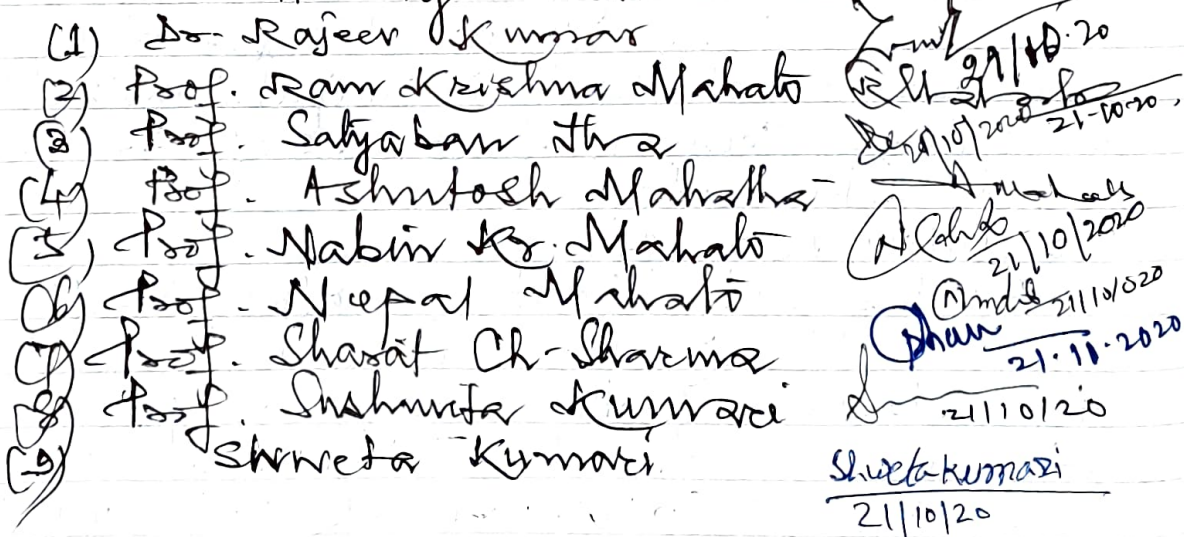 (1) Dr. Rajeev Kumar 21/10.20
(2) Prof. Ram Krishna Mahato 21-10-20,
(3) Prof. Satyaban Jha 21/10/2020
(4) Prof. Ashutosh Mahatha
(5) Prof. Nabin Kr. Mahato 21/10/2020
(6) Prof. Nepal Mahato 21/10/020
(7) Prof. Sharat Ch-Sharma 21.11.2020
(8) Prof. Sushmita Kumari 21/10/20
(9) Shweta Kumari Shweta Kumari
21/10/20